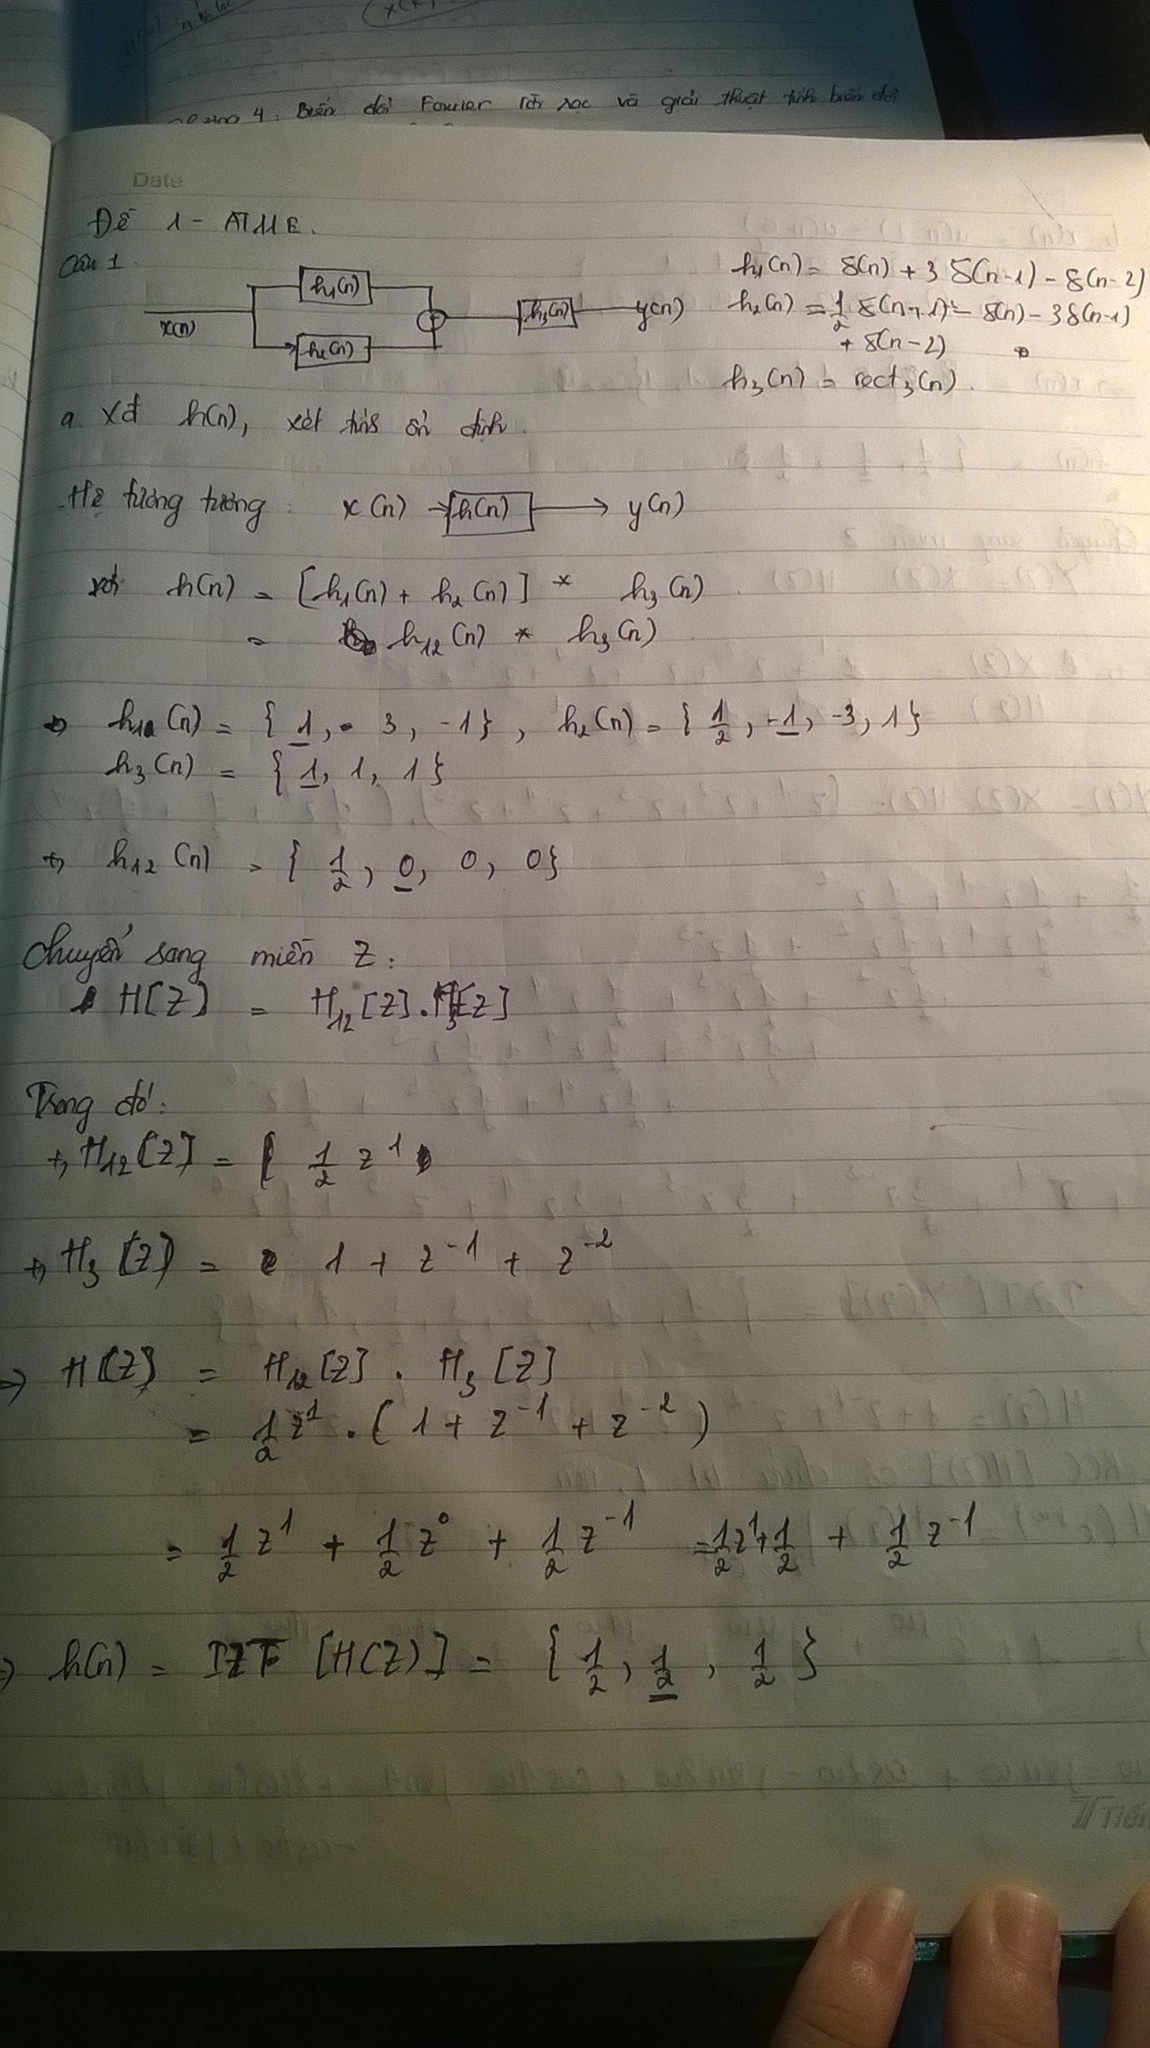 Chương 4. Biến đổi Fourier rời rạc và giải thuật tính biến đổi
Date
Đề 1 - AT11E.
Câu 1
x(n)
h₁(n)
h₂(n)
+
h₃(n)
y(n)
h₁(n) = δ(n) + 3 δ(n-1) - δ(n-2)
h₂(n) = 1/2 δ(n+1) - δ(n) - 3δ(n-1)
+ δ(n-2)
h₃(n) = rect₃(n).
a. Xđ h(n), xét tính ổn định.
Hệ tương tương: x(n) → h(n) → y(n)
với h(n) = [h₁(n) + h₂(n)] * h₃(n)
= h₁₂(n) * h₃(n)
h₁(n) = { 1, 3, -1}, h₂(n) = { 1/2, -1, -3, 1}
h₃(n) = { 1, 1, 1}
+, h₁₂(n) = { 1/2, 0, 0, 0}
Chuyển sang miền Z:
H[Z] = H₁₂[Z].H₃[Z]
Trong đó:
+, H₁₂[Z] = 1/2 z¹
+, H₃[Z] = 1 + z⁻¹ + z⁻²
⇒ H[Z] = H₁₂[Z] . H₃[Z]
= 1/2 z¹ . ( 1 + z⁻¹ + z⁻² )
= 1/2 z¹ + 1/2 z⁰ + 1/2 z⁻¹ = 1/2 z¹ + 1/2 + 1/2 z⁻¹
⇒ h(n) = IZT [H(Z)] = { 1/2, 1/2, 1/2 }
Tiến